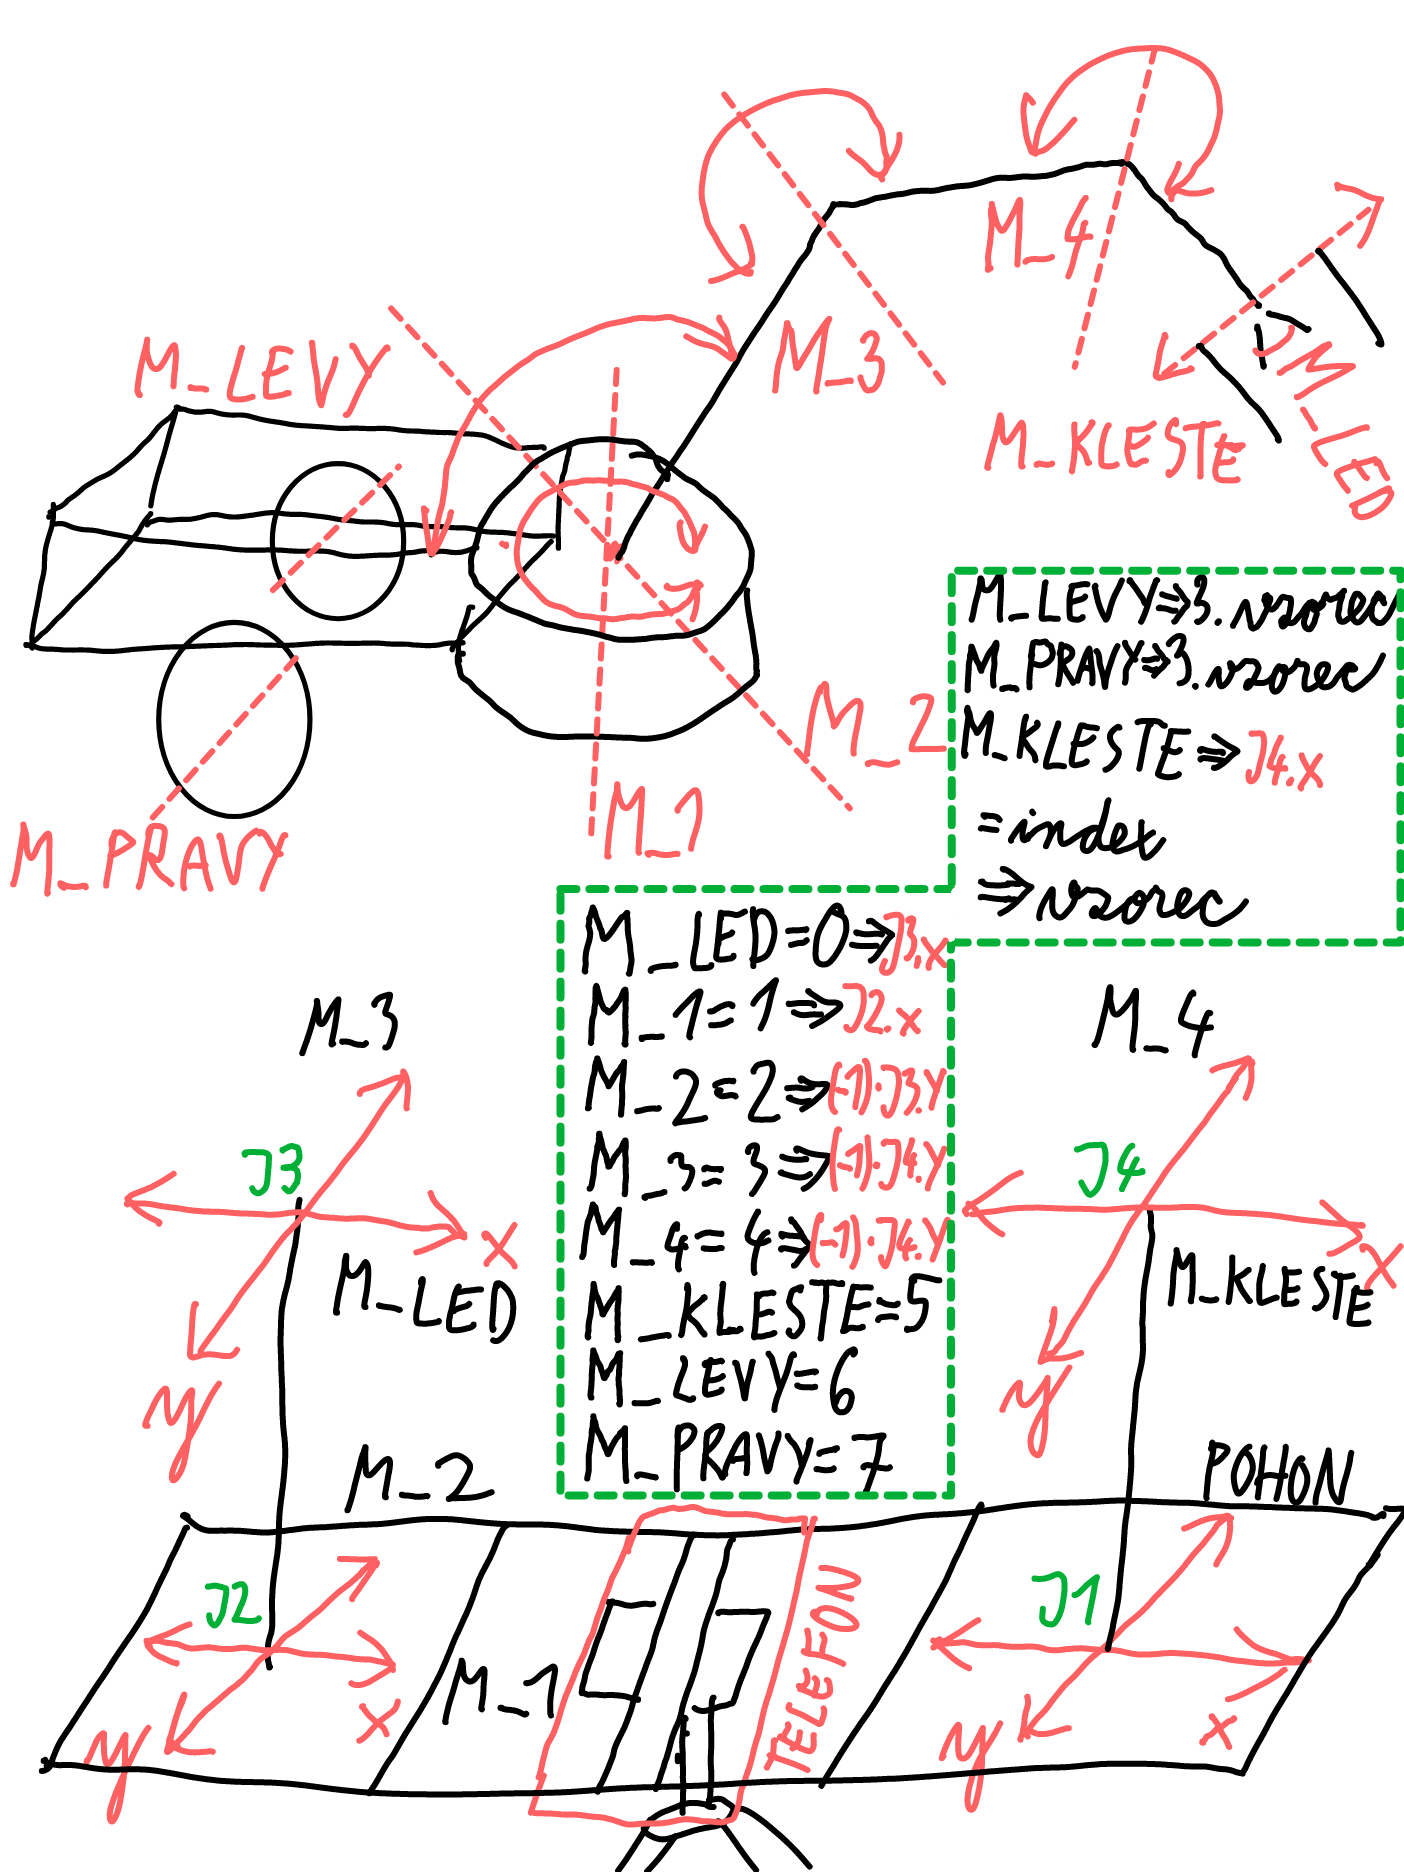 M_4
M_3
M_LEVY
M_KLESTE
M_LED
M_2
M_1
M_PRAVY
M_LEVY⇒3.vzorec
M_PRAVY⇒3.vzorec
M_KLESTE⇒J4.x
=index
⇒vzorec
M_LED=0⇒J3.x
M_1=1⇒J2.x
M_2=2⇒(-1)·J3.Y
M_3=3⇒(-1)·J4.Y
M_4=4⇒(-1)·J4.Y
M_KLESTE=5
M_LEVY=6
M_PRAVY=7
M_3
J3
x
M_LED
y
M_4
J4
x
M_KLESTE
y
M_2
J2
x
y
M_1
TELEFON
POHON
J1
x
y